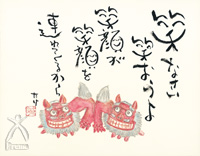 笑いなさい
笑おうよ
笑顔が
笑顔を
連れてくるから